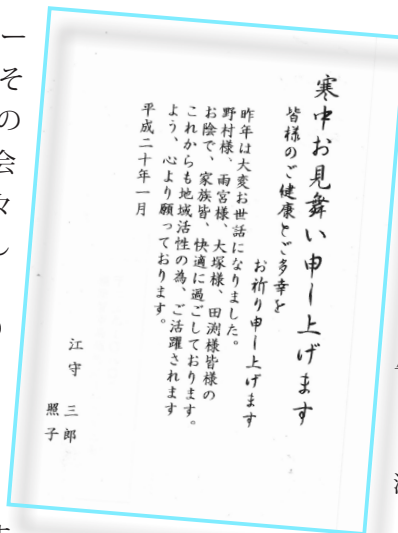 寒中お見舞い申し上げます
皆様のご健康とご多幸を
お祈り申し上げます
昨年は大変お世話になりました。
野村様、雨宮様、大塚様、田渕様皆様の
お陰で、家族皆、快適に過ごしております。
これからも地域活性の為、ご活躍されます
よう、心より願っております。
平成二十年一月
江守 三郎
照子
ー
そ
の
会
々
し